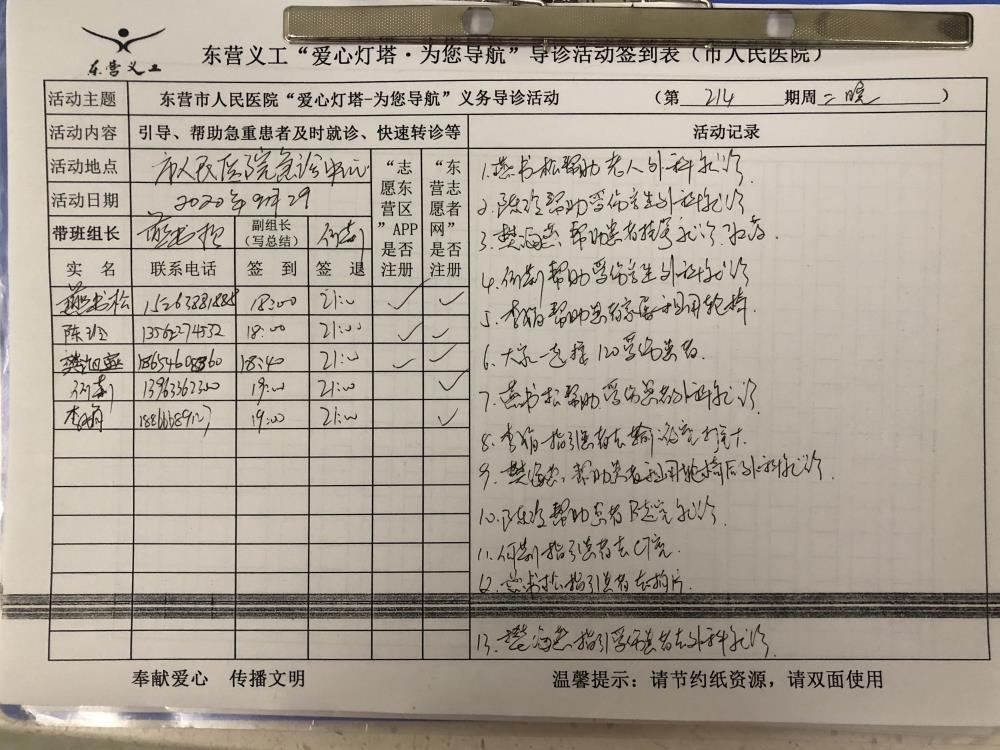 东营义工
东营义工“爱心灯塔·为您导航”导诊活动签到表（市人民医院）
活动主题 东营市人民医院“爱心灯塔-为您导航”义务导诊活动 （第 214 期周二晚 ）
活动内容 引导、帮助急重患者及时就诊、快速转诊等 活动记录
活动地点 市人民医院急诊中心
活动日期 2020年9月29
“志愿东营区”APP是否注册
“东营志愿者网”是否注册
带班组长 燕书松 副组长（写总结） 何荆
实 名 联系电话 签 到 签 退
燕书松 15263881888 18:00 21:00 ✓ ✓
陈玲 13562274532 18:00 21:00 ✓ ✓
樊海燕 18:40 21:00 ✓ ✓
何荆 13963362300 19:00 21:00 ✓
李娟 19:00 21:00 ✓
1.燕书松帮助老人外科就诊
2.陈玲帮助受伤学生外科就诊
3.帮助患者挂号就诊.取药
4.何荆帮助受伤学生外科就诊
5.帮助患者家属租用轮椅
6.大家一起接120受伤患者.
7.燕书松帮助受伤患者外科就诊
8.指引患者去输液室打针
9.帮助患者租用轮椅后外科就诊
10.陈玲帮助患者B超室就诊
11.何荆指引患者去CT室.
12.燕书松指引患者去拍片
13.指引受伤患者去外科就诊
奉献爱心 传播文明 温馨提示：请节约纸资源，请双面使用